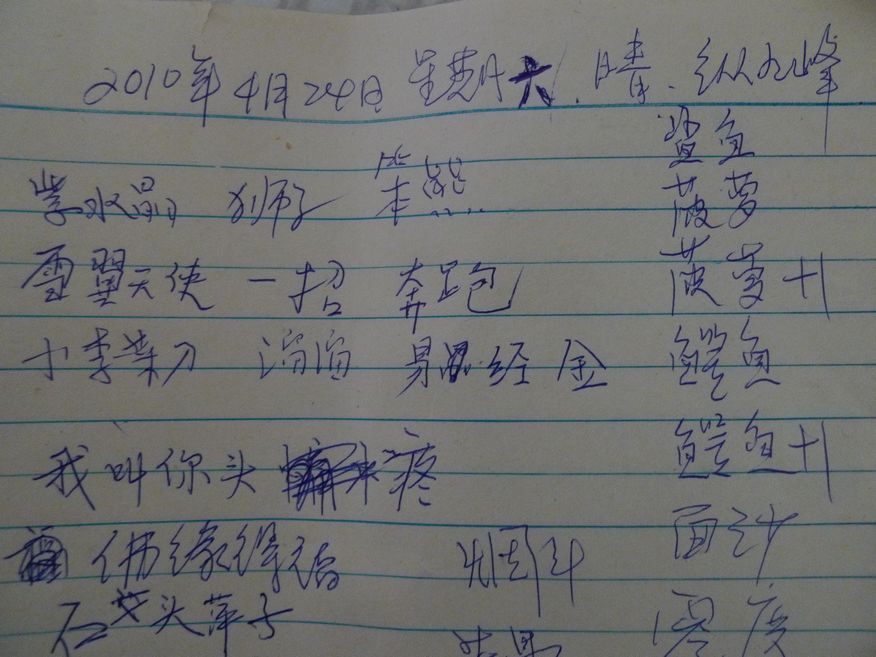 2010年4月24日 星期六、晴、纵九峰
鲨鱼
紫水晶 狮子 笨熊 菠萝
雪翼天使 一招 奔跑 菠萝+1
小李菜刀 滔滔 易经金 鳄鱼
鳄鱼+1
我叫你头疼
面纱
佛缘得福 烟斗
石头萍子 零度